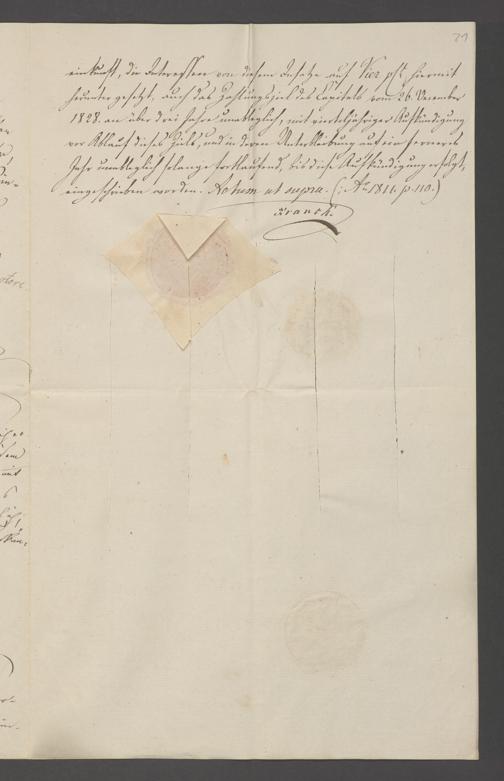 29
einkunft, die Interessen von diesem Insatze auf Vier pCt hiermit
herunter gesetzt, auch das Zahlungsziel des Capitals vom 26. December
1828. an über drei Jahre unableglich, mit vierteljähriger Aufkündigung
vor Ablauf dieses Ziels, und in deren Unterbleibung auf ein ferneres
Jahr unableglich solange fortlaufend, bis diese Aufkündigung erfolgt,
eingeschrieben worden. Actum ut supra. (: No 1811. p. 110.)
Franck.